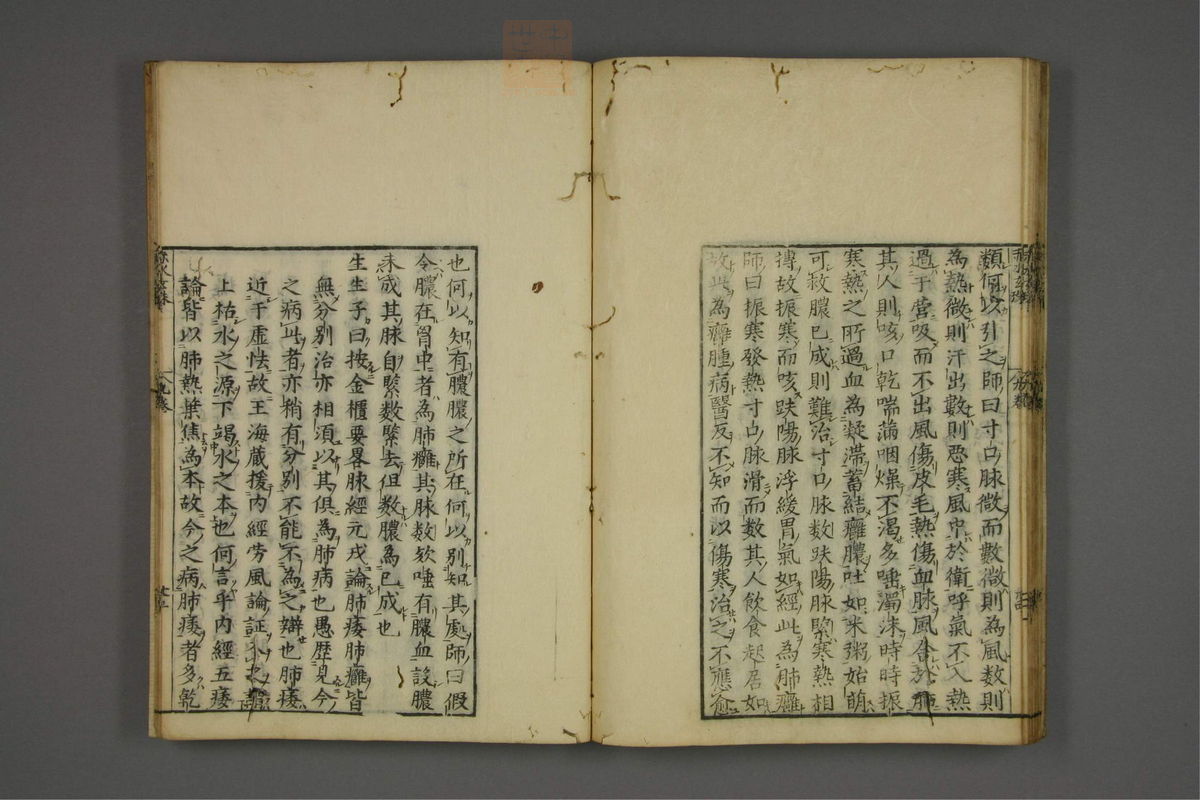 類何以引之師曰寸口脉微而數微則為風數則
為熱微則汗出數則惡寒風中於衛呼氣不入熱
過于營吸而不出風傷皮毛熱傷血脉風舎於肺
其人則咳口乾喘滿咽燥不渴多唾濁沫時時振
寒熱之所過血為凝滯蓄結癰膿吐如米粥始萌
可救膿已成則難治寸口脉数趺陽脉緊寒熱相
搏故振寒而咳趺陽脉浮緩胃氣如經此為肺癰
師曰振寒發熱寸口脉滑而数其人飲食起居如
故此為癰腫病醫反不知而以傷寒治之不應愈
也何以知有膿膿之所在何以别知其處師曰假
令膿在胷中者為肺癰其脉数欬唾有膿血設膿
未成其脉自緊数緊去但数膿為已成也
生生子曰按金櫃要畧脉經元戎論肺痿肺癰皆
無分别治亦相須以其俱為肺病也愚歴見今
之病此者亦稍有分别不能不為之辯也肺痿
近于虚怯故王海蔵援内經勞風論証
上枯水之源下竭水之本也何言乎内經五痿
論皆以肺熱葉焦為本故今之病肺痿者多乾